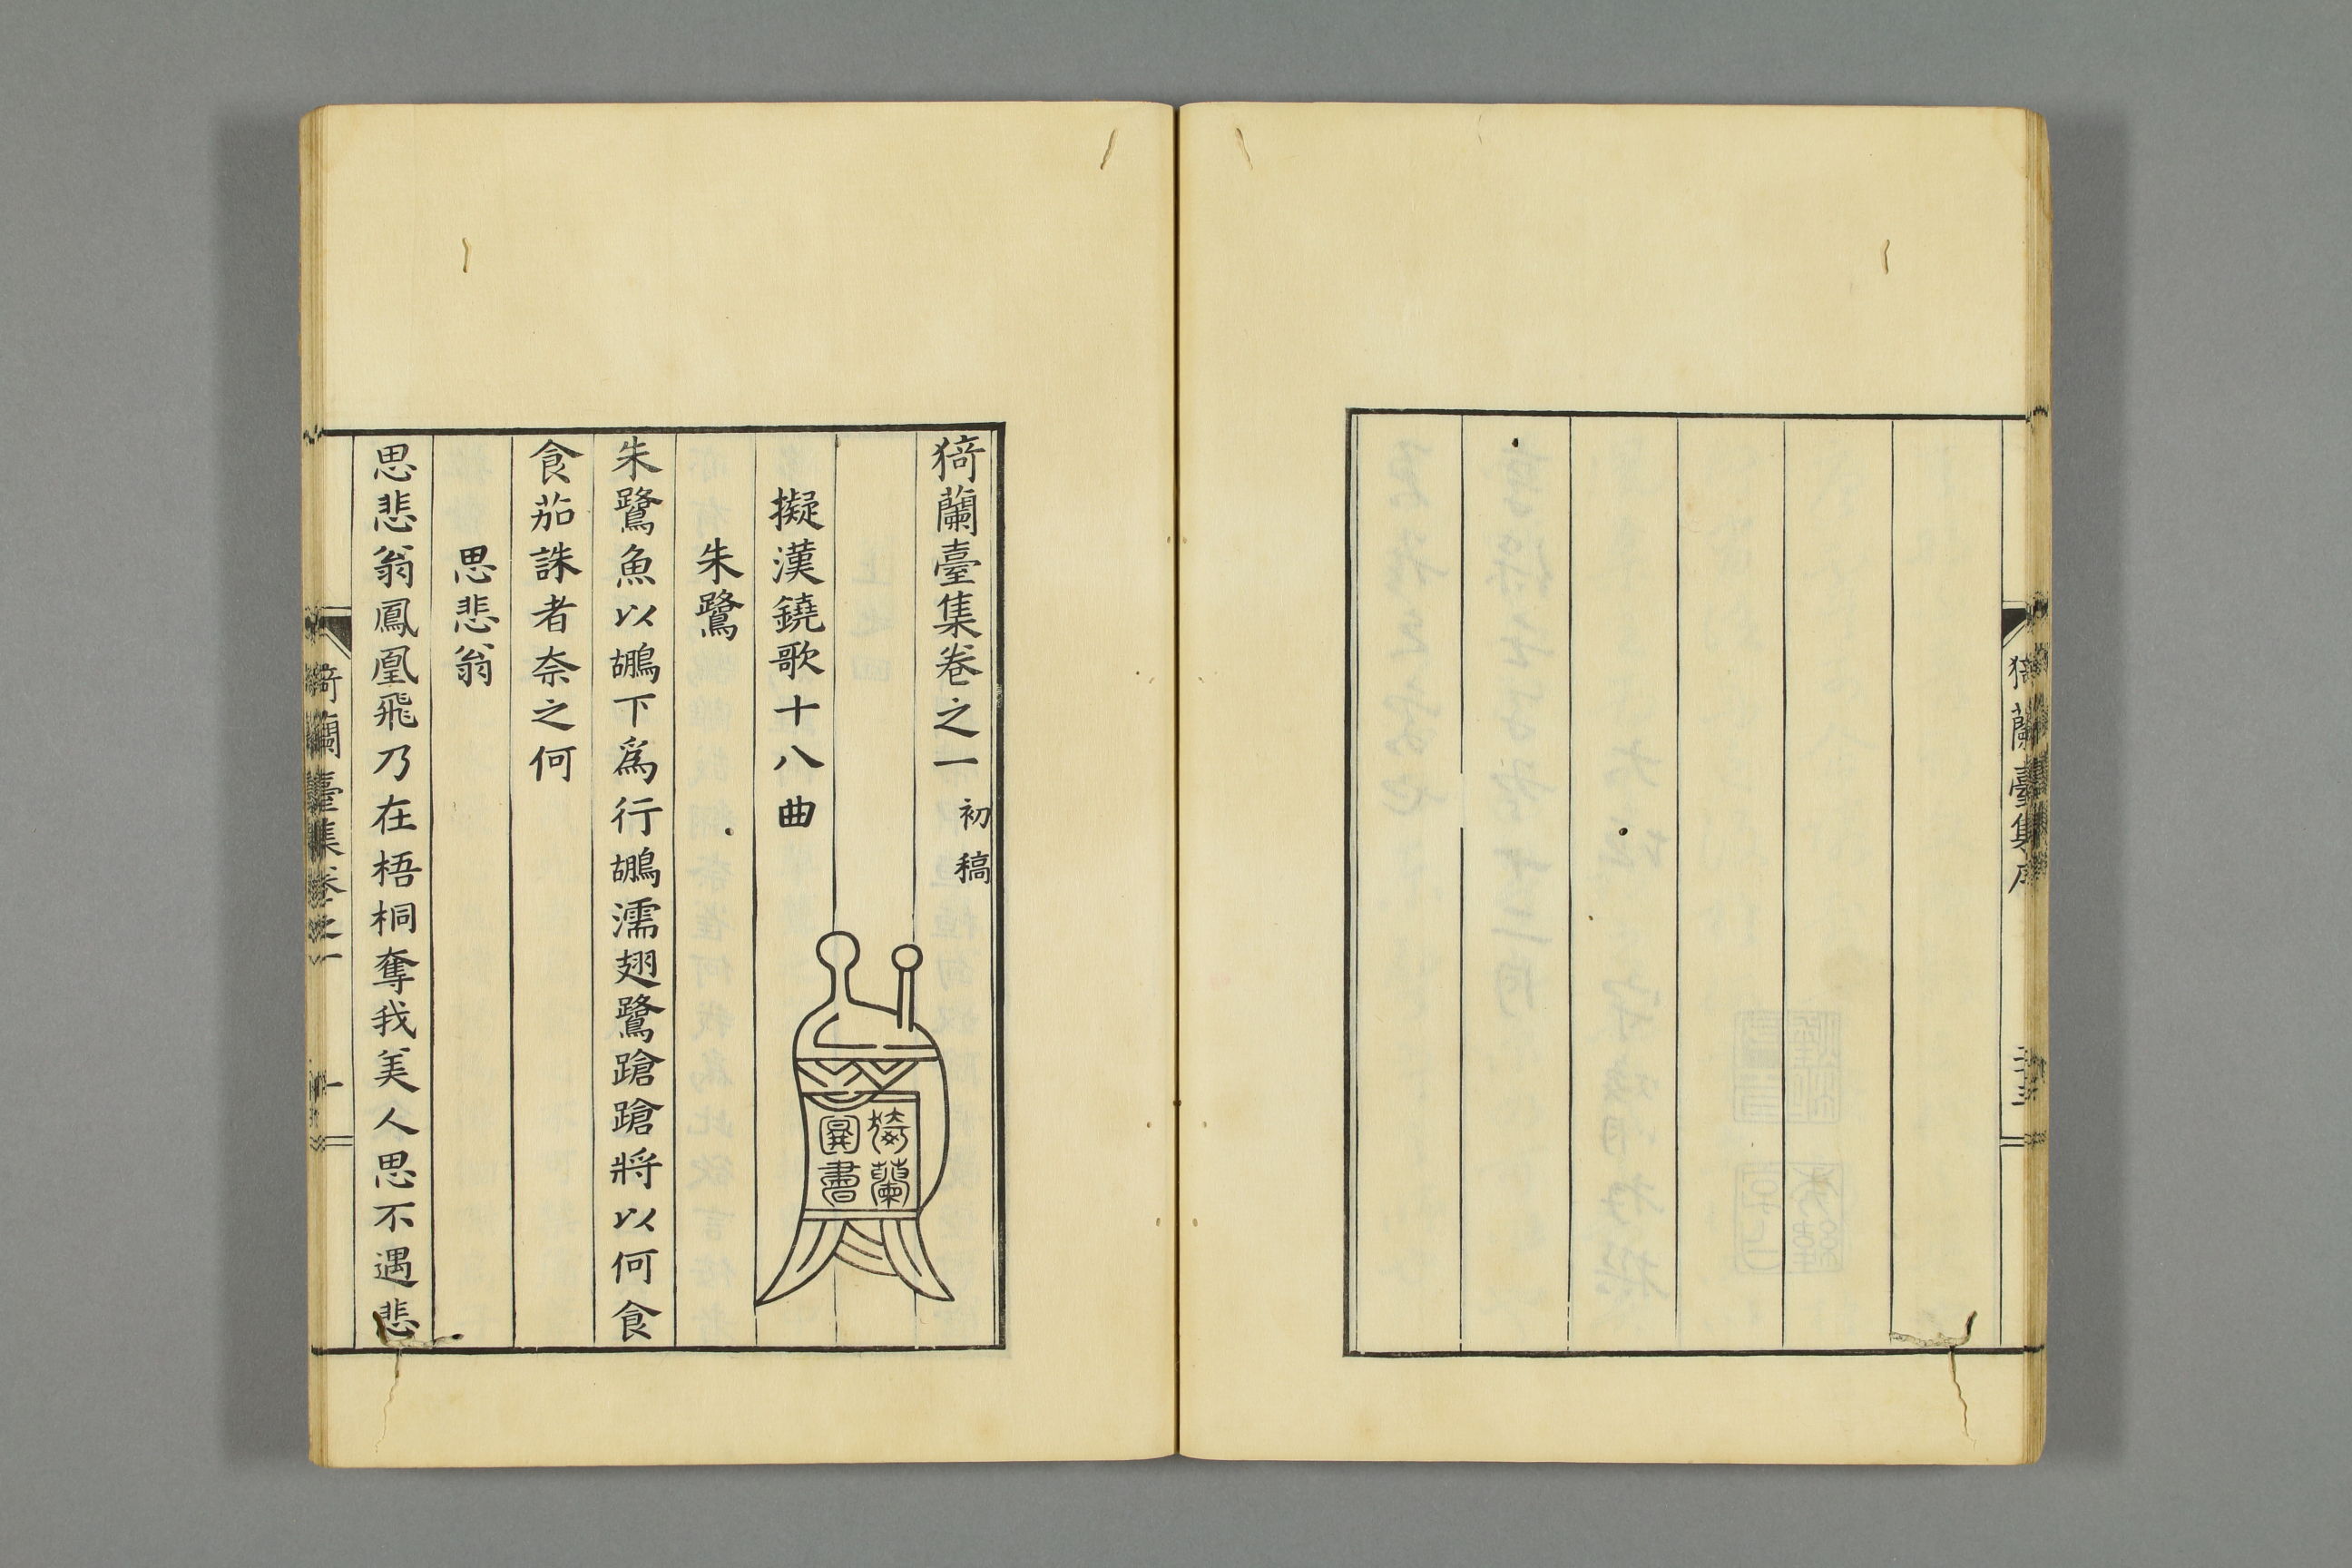 猗蘭臺集序
猗蘭臺集卷之一 初稿
擬漢鐃歌十八曲
朱鷺
朱鷺魚以鶘下爲行鶘濡翅鷺蹌蹌將以何食
食茄誅者奈之何
思悲翁
思悲翁鳳凰飛乃在梧桐奪我美人思不遇悲
猗蘭臺集卷之一
一
猗蘭
圖書